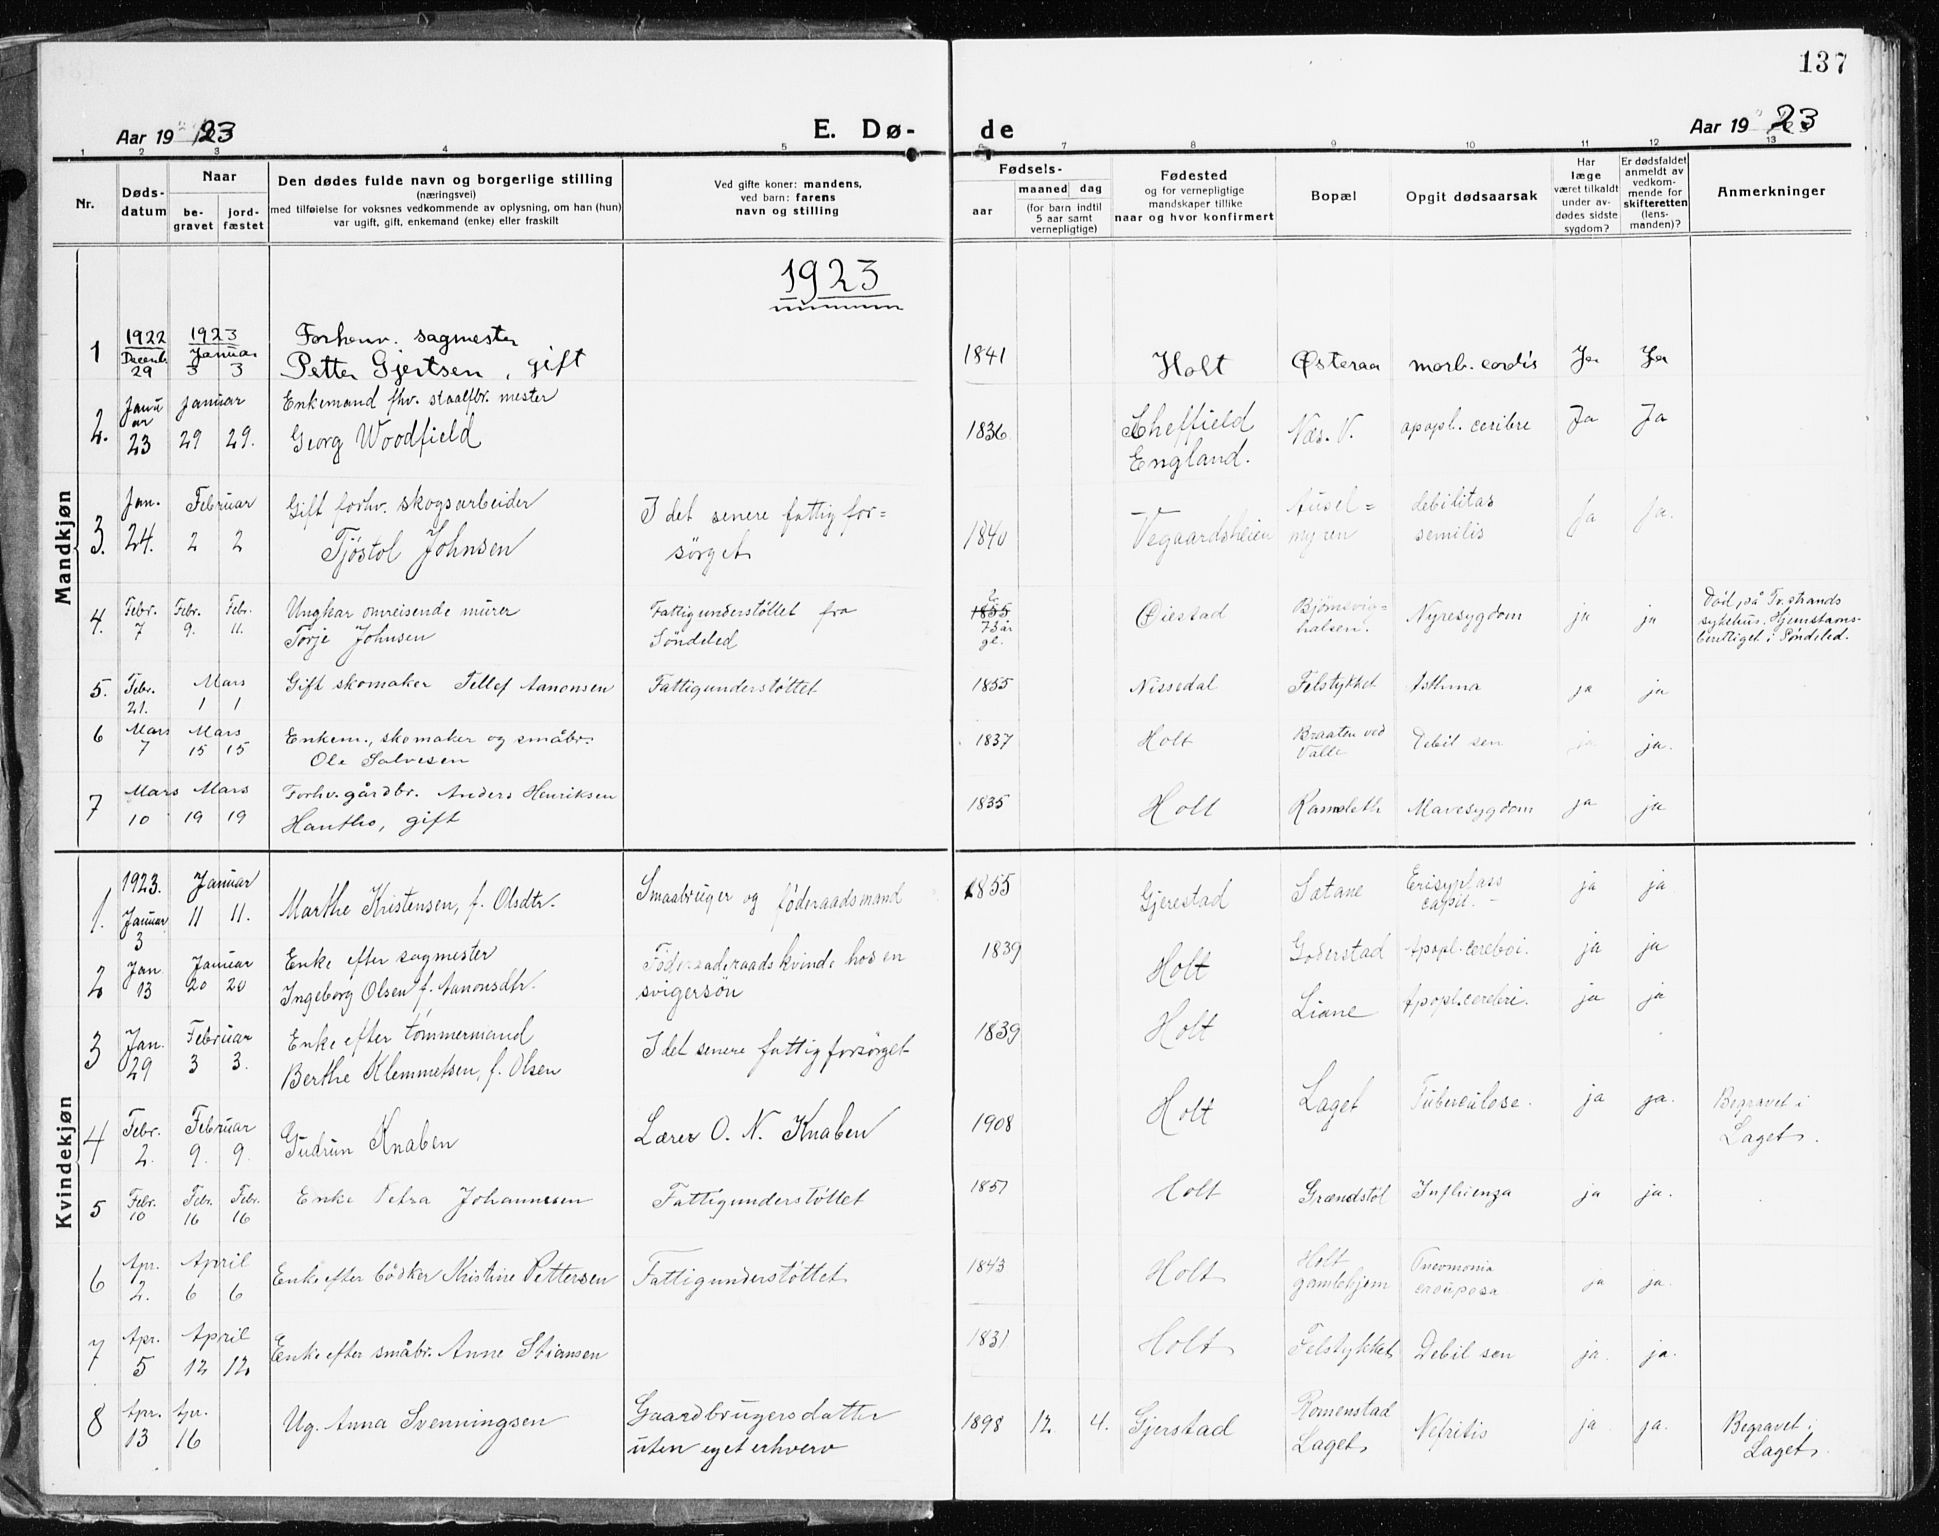 137
Aar 1923
E. Dø-
de
Aar 1923
1 2 3 4 5 6 7 8 9 10 11 12 13
Nr.
Døds-
datum
Naar
be-
gravet
jord-
fæstet
Den dødes fulde navn og borgerlige stilling
(næringsvei)
med tilføielse for voksnes vedkommende av oplysning, om han (hun)
var ugift, gift, enkemand (enke) eller fraskilt
Ved gifte koner: mandens,
ved barn: farens
navn og stilling
Fødsels-
aar
maaned
dag
(for barn indtil
5 aar samt
vernepligtige)
Fødested
og for vernepligtige
mandskaper tillike
naar og hvor konfirmert
Bopæl
Opgit dødsaarsak
Har
læge
været tilkaldt
under av-
dødes sidste
sygdom?
Er dødsfaldet
anmeldt av
vedkom-
mende for
skifteretten
(lens-
manden)?
Anmerkninger
1923
Mandkjøn
1 1922 Decemb. 29 1923 Januar 3 3
Forhenv. sagmester
Petter Gjertsen, gift
1841 Holt Østeraa morb. cordis Ja Ja
2. Januar 23 Januar 29 29.
Enkemand fhv. staalfbr. mester
Georg Woodfield
1836 Sheffield
England.
Næs. V. apopl. ceribre Ja Ja
3. Jan. 24. Februar 2 2
Gift forhv. skogsarbeider
Tjöstol Johnsen
I det senere fattigfor=
sørget
1840 Vegaardsheien
Ausel=
myren
debilitas
semilis
Ja Ja.
4. Febr. 7 Febr. 9. Febr. 11.
Ungkar omreisende murer
Torje Johnsen
Fattigunderstøttet fra
Söndeled
1855
73 år
gl.
Øiestad
Bjömsvig-
halsen.
Nyresygdom ja ja
Död, så Tv.strands
sykehus. Hjemstavns-
berettiget i Söndeled.
5. Febr. 21. Mars 1 1
Gift skomaker Tellef Aanonsen
Fattigunderstöttet
1855 Nissedal Felstykket Asthma ja ja
6 Mars 7 Mars 15 15
Enkem., skomaker og småbr.
Ole Salvesen
1837 Holt
Braaten ved
Valle
Debil sen ja ja.
7 Mars 10 Mars 19 19
Forhv. gårdbr. Anders Henriksen
Hantho, gift
1835 Holt Ramsleth Mavesygdom ja ja
Kvindekjøn
1. 1923. Januar 3 Januar 11 11.
Marthe Kristensen, f. Olsdtr.
Smaabruger og föderaadsmand
1855 Gjerestad Sætane
Erisyplass
capit. -
ja ja
2 Jan 13 Januar 20 20
Enke efter sagmester
Ingeborg Olsen f. Aanonsdtr.
Föderaaderaadskvinde hos en
svigersön
1839 Holt Goderstad Apopl. cereboi. ja ja
3 Jan. 29 Februar 3 3.
Enke efter tömmermand
Berthe Klemmetsen, f. Olsen
I det senere fattigforsörget
1839 Holt Liane Apopl. cerebri. ja ja
4 Febr. 2. Februar 9. 9.
Gudrun Knaben
Lærer O. N. Knaben
1908 Holt Laget Tuberculose. ja ja.
Begravet i
Laget.
5 Febr. 10 Febr. 16 Febr. 16
Enke Petra Johannesen
Fattigunderstöttet
1851 Holt Grændstöl Influenza ja ja.
6 Apr. 2. April 6 6
Enke efter bödker Kristine Pettersen
Fattigunderstöttet
1843 Holt
Holt
gamlehjem
Pneomonia
crouposa
ja ja.
7 Apr. 5 April 12 12.
Enke efter småbr. Anne Stiansen
1831 Holt Felstykket Debil sen ja. ja.
8 Apr. 13 Apr. 16
Ug. Anna Svenningsen
Gaardbrugersdatter
uten eget erhverv
1898 12 4. Gjerstad
Romenstad
Laget
Nefritis ja ja.
Begravet i
Laget.